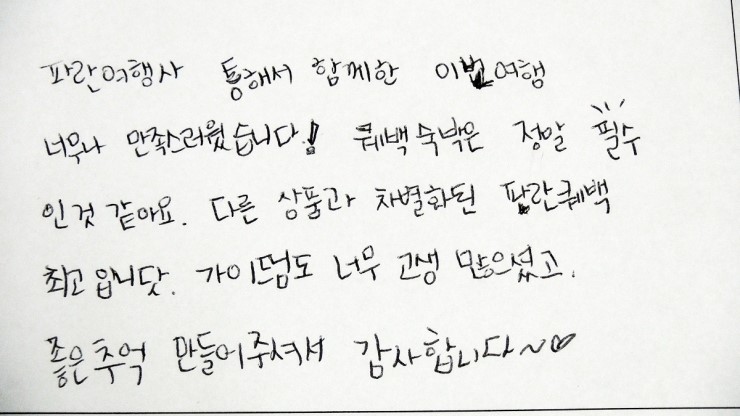 파란여행사 통해서 함께한 이번여행
너무나 만족스러웠습니다! 퀘백숙박은 정말 필수
인것 같아요. 다른 상품과 차별화된 파란퀘백
최고입니닷. 가이드님도 너무 고생 많으셨고.
좋은추억 만들어주셔서 감사합니다~♡